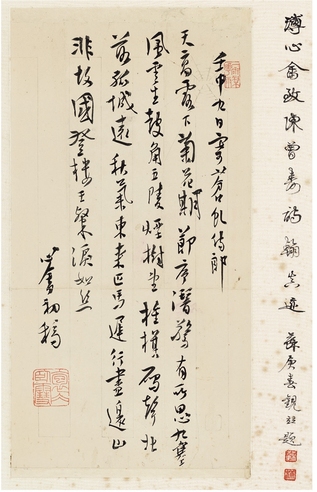 溥心畬致陳曾壽詩翰真迹 蘇庚春觀並題
壬申九日寄蒼虬侍郎
天高露下菊花期節序潛驚有所思九塞
風雲生鼓角五陵煙樹雁聲北
落孤城遠秋氣東來匹馬遲行盡邊山
非故國登樓王粲淚如絲
心畬初稿